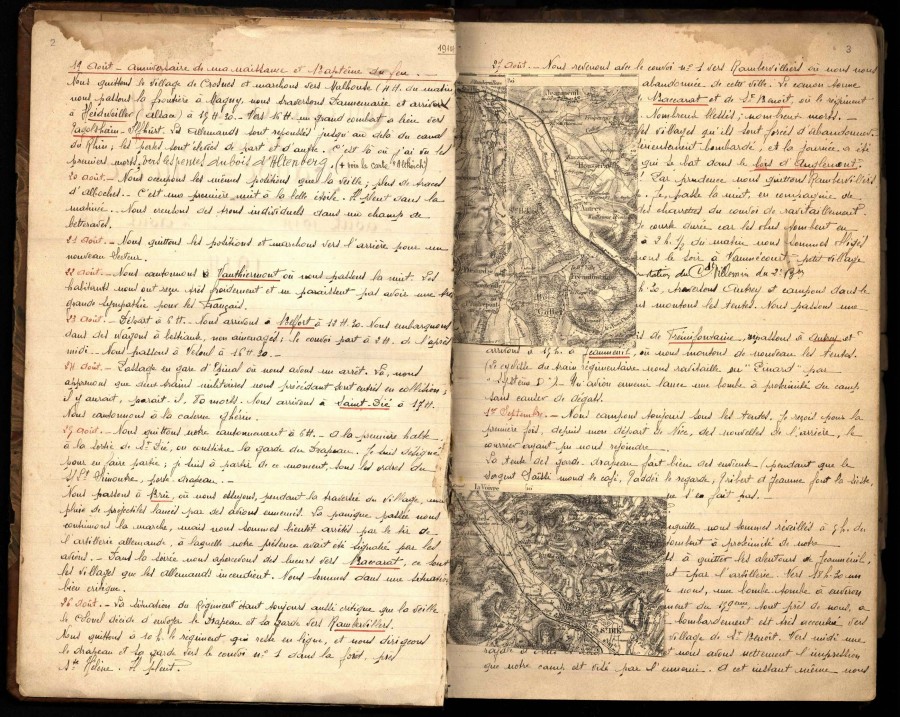 2
19 Août - Anniversaire de ma naissance et Baptême du feu. -
Nous quittons le village de Crosnes et marchons vers Mulhouse (4 H. du matin
nous passons la frontière à Magny, nous traversons Dannemarie et arrivons
à Heidwiller (Alsace) à 13 H. 30. Vers 15 H. un grand combat a lieu vers
Tagolsheim - Illfurt. Les Allemands sont repoussés jusqu'au delà du canal
du Rhin; les pertes sont élevées de part et d'autre. C'est là où j'ai vu les
premiers morts, vers les pentes du bois d'Altenberg, (+ voir la carte "Altkirch)
20 août. - Nous occupons les mêmes positions que la veille; plus de traces
d'alboches. - C'est ma première nuit à la belle étoile. Il pleut dans la
matinée. Nous creusons des trous individuels dans un champ de
betteraves.
21 Août. - Nous quittons les positions et marchons vers l'arrière pour un
nouveau secteur.
22 Août. - Nous cantonnons à Vauthiermont où nous passons la nuit. Les
habitants nous ont reçu très froidement et ne paraissent pas avoir une très
grande sympathie pour les Français.
23 Août. - Départ à 6 H. - Nous arrivons à Belfort à 12 H. 30. Nous embarquons
dans des wagons à bestiaux, non aménagés; le convoi part à 2 H. de l'après
midi - Nous passons à Vesoul à 16 H. 30. -
24 Août. - Passage en gare d'Épinal où nous avons un arrêt. Là, nous
apprenons que deux trains militaires nous précédant sont entrés en collision,
il y aurait, paraît-il, 80 morts. Nous arrivons à Saint-Dié à 17 H.
Nous cantonnons à la caserne
25 Août. - Nous quittons notre cantonnement à 6 H. - A la première halte
à la sortie de St Dié, on constitue la garde du Drapeau. Je suis désigné
pour en faire partie; je suis à partir de ce moment, sous les ordres du
Lt Simontre, porte-drapeau. -
Nous passons à Brû, où nous essuyons, pendant la traversée du village, une
pluie de projectiles lancés par des avions ennemis. La panique passée nous
continuons la marche, mais nous sommes bientôt arrêtés par le tir de
l'artillerie allemande, à laquelle notre présence avait été signalée par les
avions. - Dans la soirée nous apercevons des lueurs vers Baccarat, ce sont
les villages que les allemands incendient. Nous sommes dans une situation
bien critique.
26 Août. - La situation du Régiment étant toujours aussi critique que la veille
le Colonel décide d'envoyer le Drapeau et la garde vers Rambervillers.
Nous quittons à 10 h. le régiment qui reste en ligne, et nous dirigeons
le drapeau et la garde vers le convoi n° 1 dans la forêt, près
Ste Hélène. Il pleut.
1914
3
27 Août. - Nous revenons avec le convoi n° 1 vers Rambervillers où nous nous
abandonnée de cette ville. Le canon tonne
Baccarat et de St Benoît, où le régiment
Nombreux blessés; nombreux morts. -
les villages qu'ils sont forcés d'abandonner.
bombardé, et la journée a été
qui se bat dans le bois d'Anglemont.
Par prudence nous quittons Rambervillers
passe la nuit, en compagnie de
des charrettes du convoi de ravitaillement.
courte durée car les obus tombent en
à 2 h. ½ du matin nous sommes
le soir à Vomécourt petit village
du Ct Villemin du 3e Bon
traversons Autrey et campons dans le
montons les tentes. Nous passons une
de Frémifontaine, repassons à Autrey et
arrivons à 17 h. à Jeanménil, où nous montons de nouveau les tentes.
Un avion ennemi lance une bombe à proximité du camp
sans causer de dégâts.
1er Septembre. - Nous campons toujours sous les tentes. Je reçois pour la
première fois, depuis mon départ de Nice, des nouvelles de l'arrière, le
courrier ayant pu nous rejoindre.
La tente des garde-drapeau fait bien des envieux; pendant que le
sergent moud le café, le regarde, et Jeanne font la sieste,
s'en fait pas.
nous sommes réveillés à 5 h. du
tombent à proximité de notre
à quitter les alentours de Jeanménil,
par l'artillerie. Vers 18 h. 30 un
nous, une bombe tombe à environ
tout près de nous, a
bombardement est très accentué vers
village de St Benoît. Vers midi une
nous avons nettement l'impression
que notre camp est visé par l'ennemi. A cet instant même nous
St DIÉ